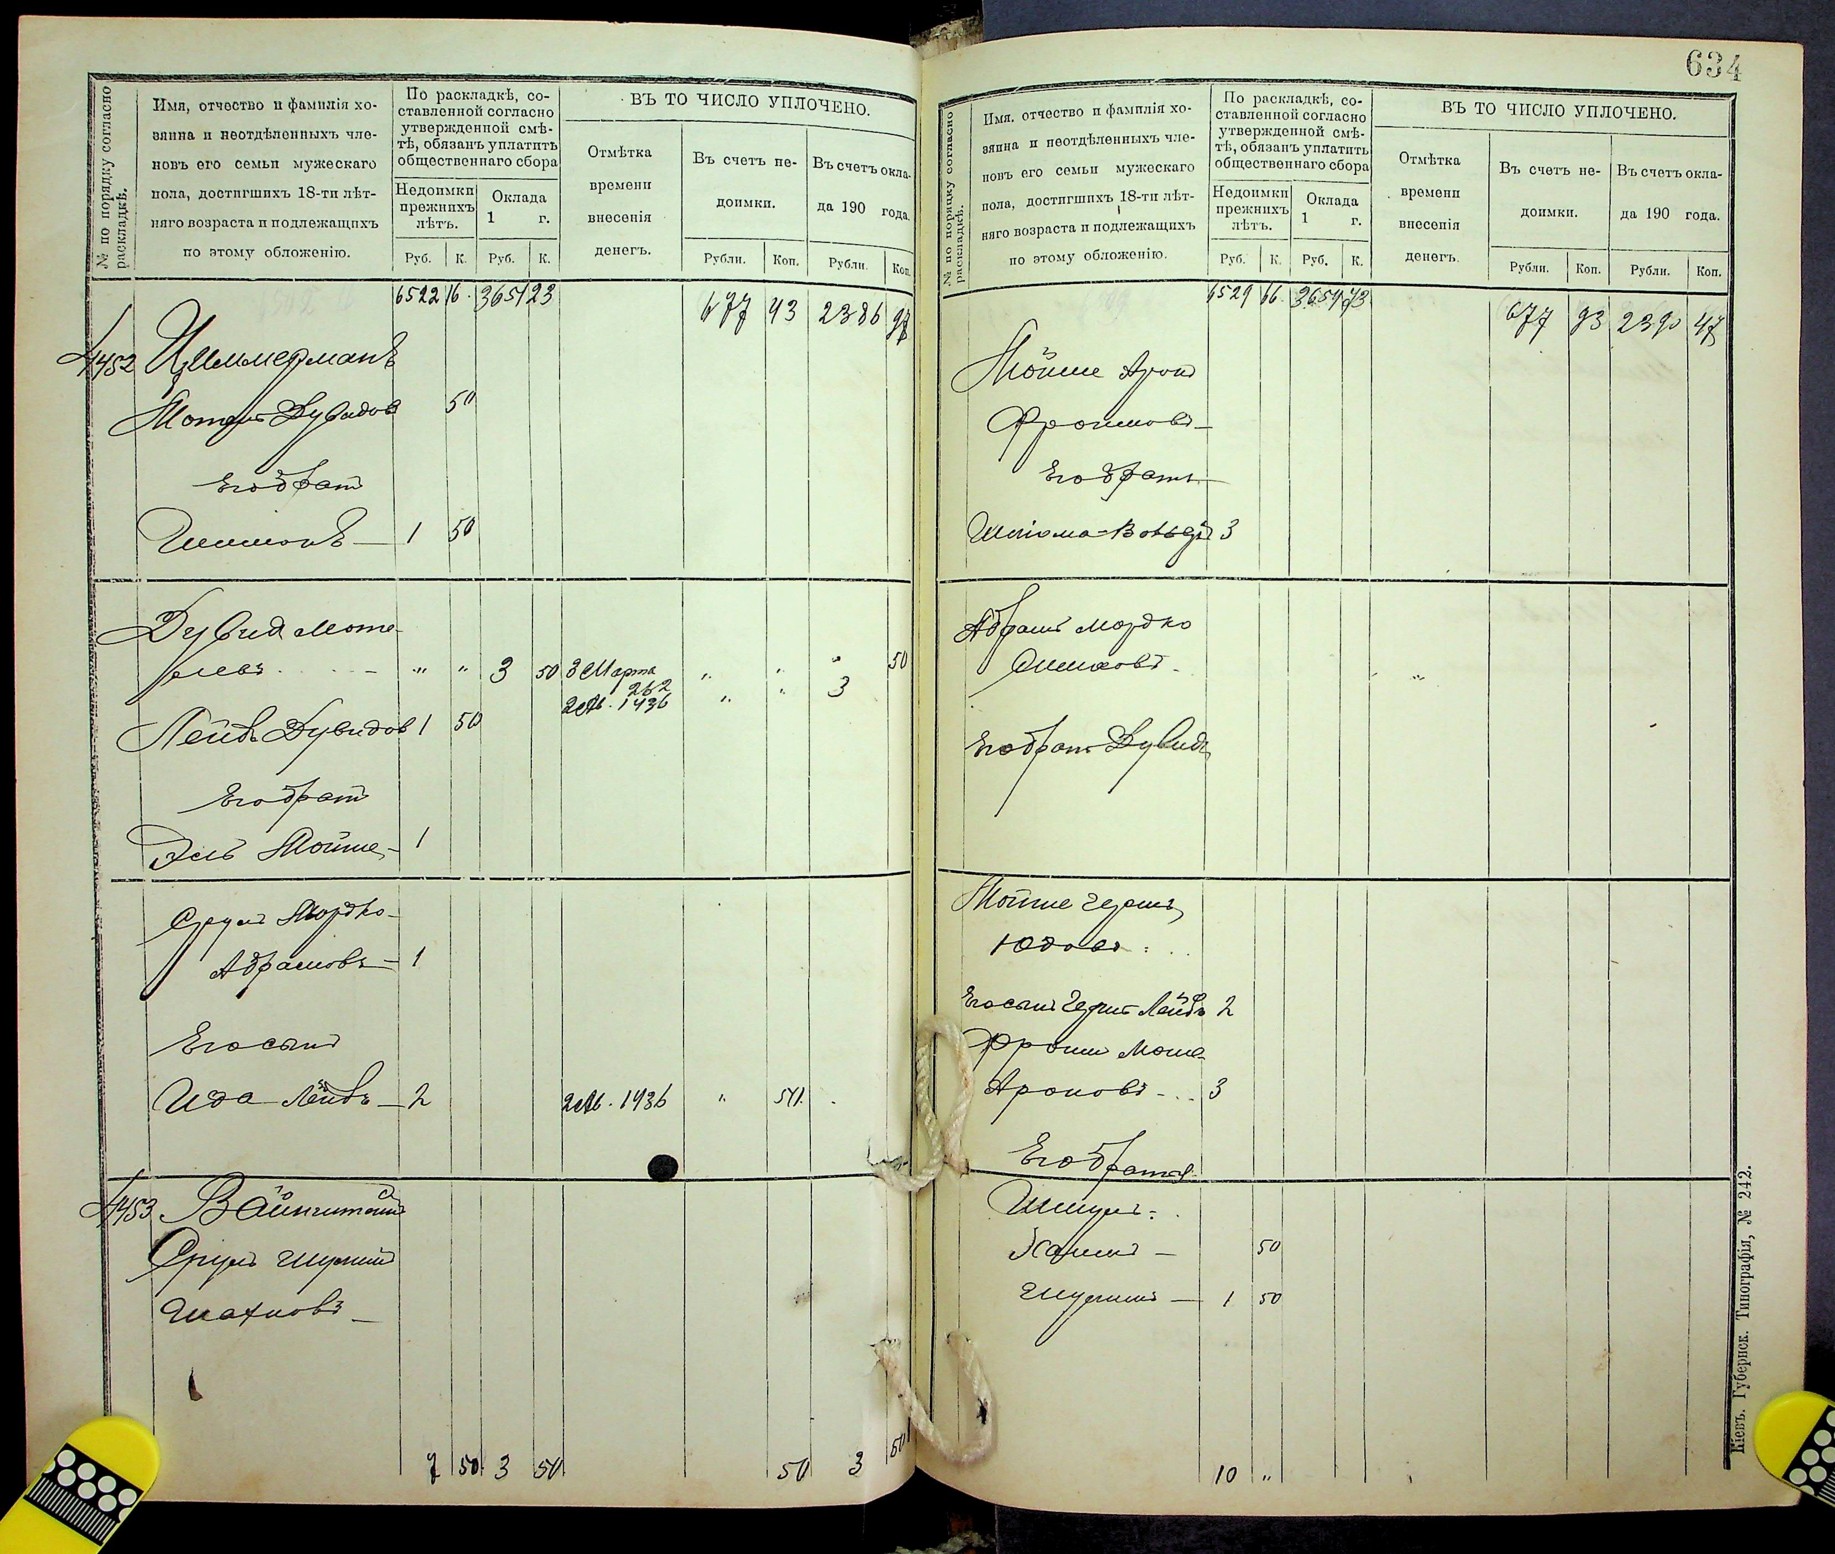 634
№ по порядку согласно раскладкѣ.
Имя, отчество и фамилія хо-
зяина и неотдѣленныхъ чле-
новъ его семьи мужескаго
пола, достигшихъ 18-ти лѣт-
няго возраста и подлежащихъ
по этому обложенію.
По раскладкѣ, со-
ставленной согласно
утвержденной смѣ-
тѣ, обязанъ уплатить
общественнаго сбора
Недоимки
прежнихъ
лѣтъ.
Оклада
1 г.
Руб. К. Руб. К.
ВЪ ТО ЧИСЛО УПЛОЧЕНО.
Отмѣтка
времени
внесенія
денегъ.
Въ счетъ не-
доимки.
Въ счетъ окла-
да 190 года.
Рубли. Коп. Рубли. Коп.
6522 16 3651 23 677 43 2386 97
4452 Циммерманъ
Мотель Дувидовъ 50
Его братъ
Шимонъ — 1 50
Дувид Моте-
левъ - " " 3 50 3 Марта 262 " " " 50
2 Ав. 1436 " " 3
Лейбъ Дувидов 1 50
Его братъ
Эль Мойше — 1
Сруль Мордко-
Абрамовъ — 1
Его сынъ
Ида Лейбъ — 2 2 Ав. 1436 " 50
4453 Вайнштейнъ
Сруль Шулим
Шахновъ —
7 50 3 50 50 3 50
№ по порядку согласно раскладкѣ.
Имя, отчество и фамилія хо-
зяина и неотдѣленныхъ чле-
новъ его семьи мужескаго
пола, достигшихъ 18-ти лѣт-
няго возраста и подлежащихъ
по этому обложенію.
По раскладкѣ, со-
ставленной согласно
утвержденной смѣ-
тѣ, обязанъ уплатить
общественнаго сбора
Недоимки
прежнихъ
лѣтъ.
Оклада
1 г.
Руб. К. Руб. К.
ВЪ ТО ЧИСЛО УПЛОЧЕНО.
Отмѣтка
времени
внесенія
денегъ.
Въ счетъ не-
доимки.
Въ счетъ окла-
да 190 года.
Рубли. Коп. Рубли. Коп.
6529 66 3654 73 677 93 2390 47
Мойше Арон
Фроимовъ —
Его братъ —
Шлiома-Вольф 3
Абрамъ Мордко
Его братъ Дувидъ
Мойше Герш
Юдовъ
Его сынъ Герш Лейбъ 2
Фроим Моше-
Ароновъ - 3
Его братья
Шмуль
Хаимъ — 50
Шулимъ — 1 50
10 "
Кіевъ. Губернск. Типографія, № 242.